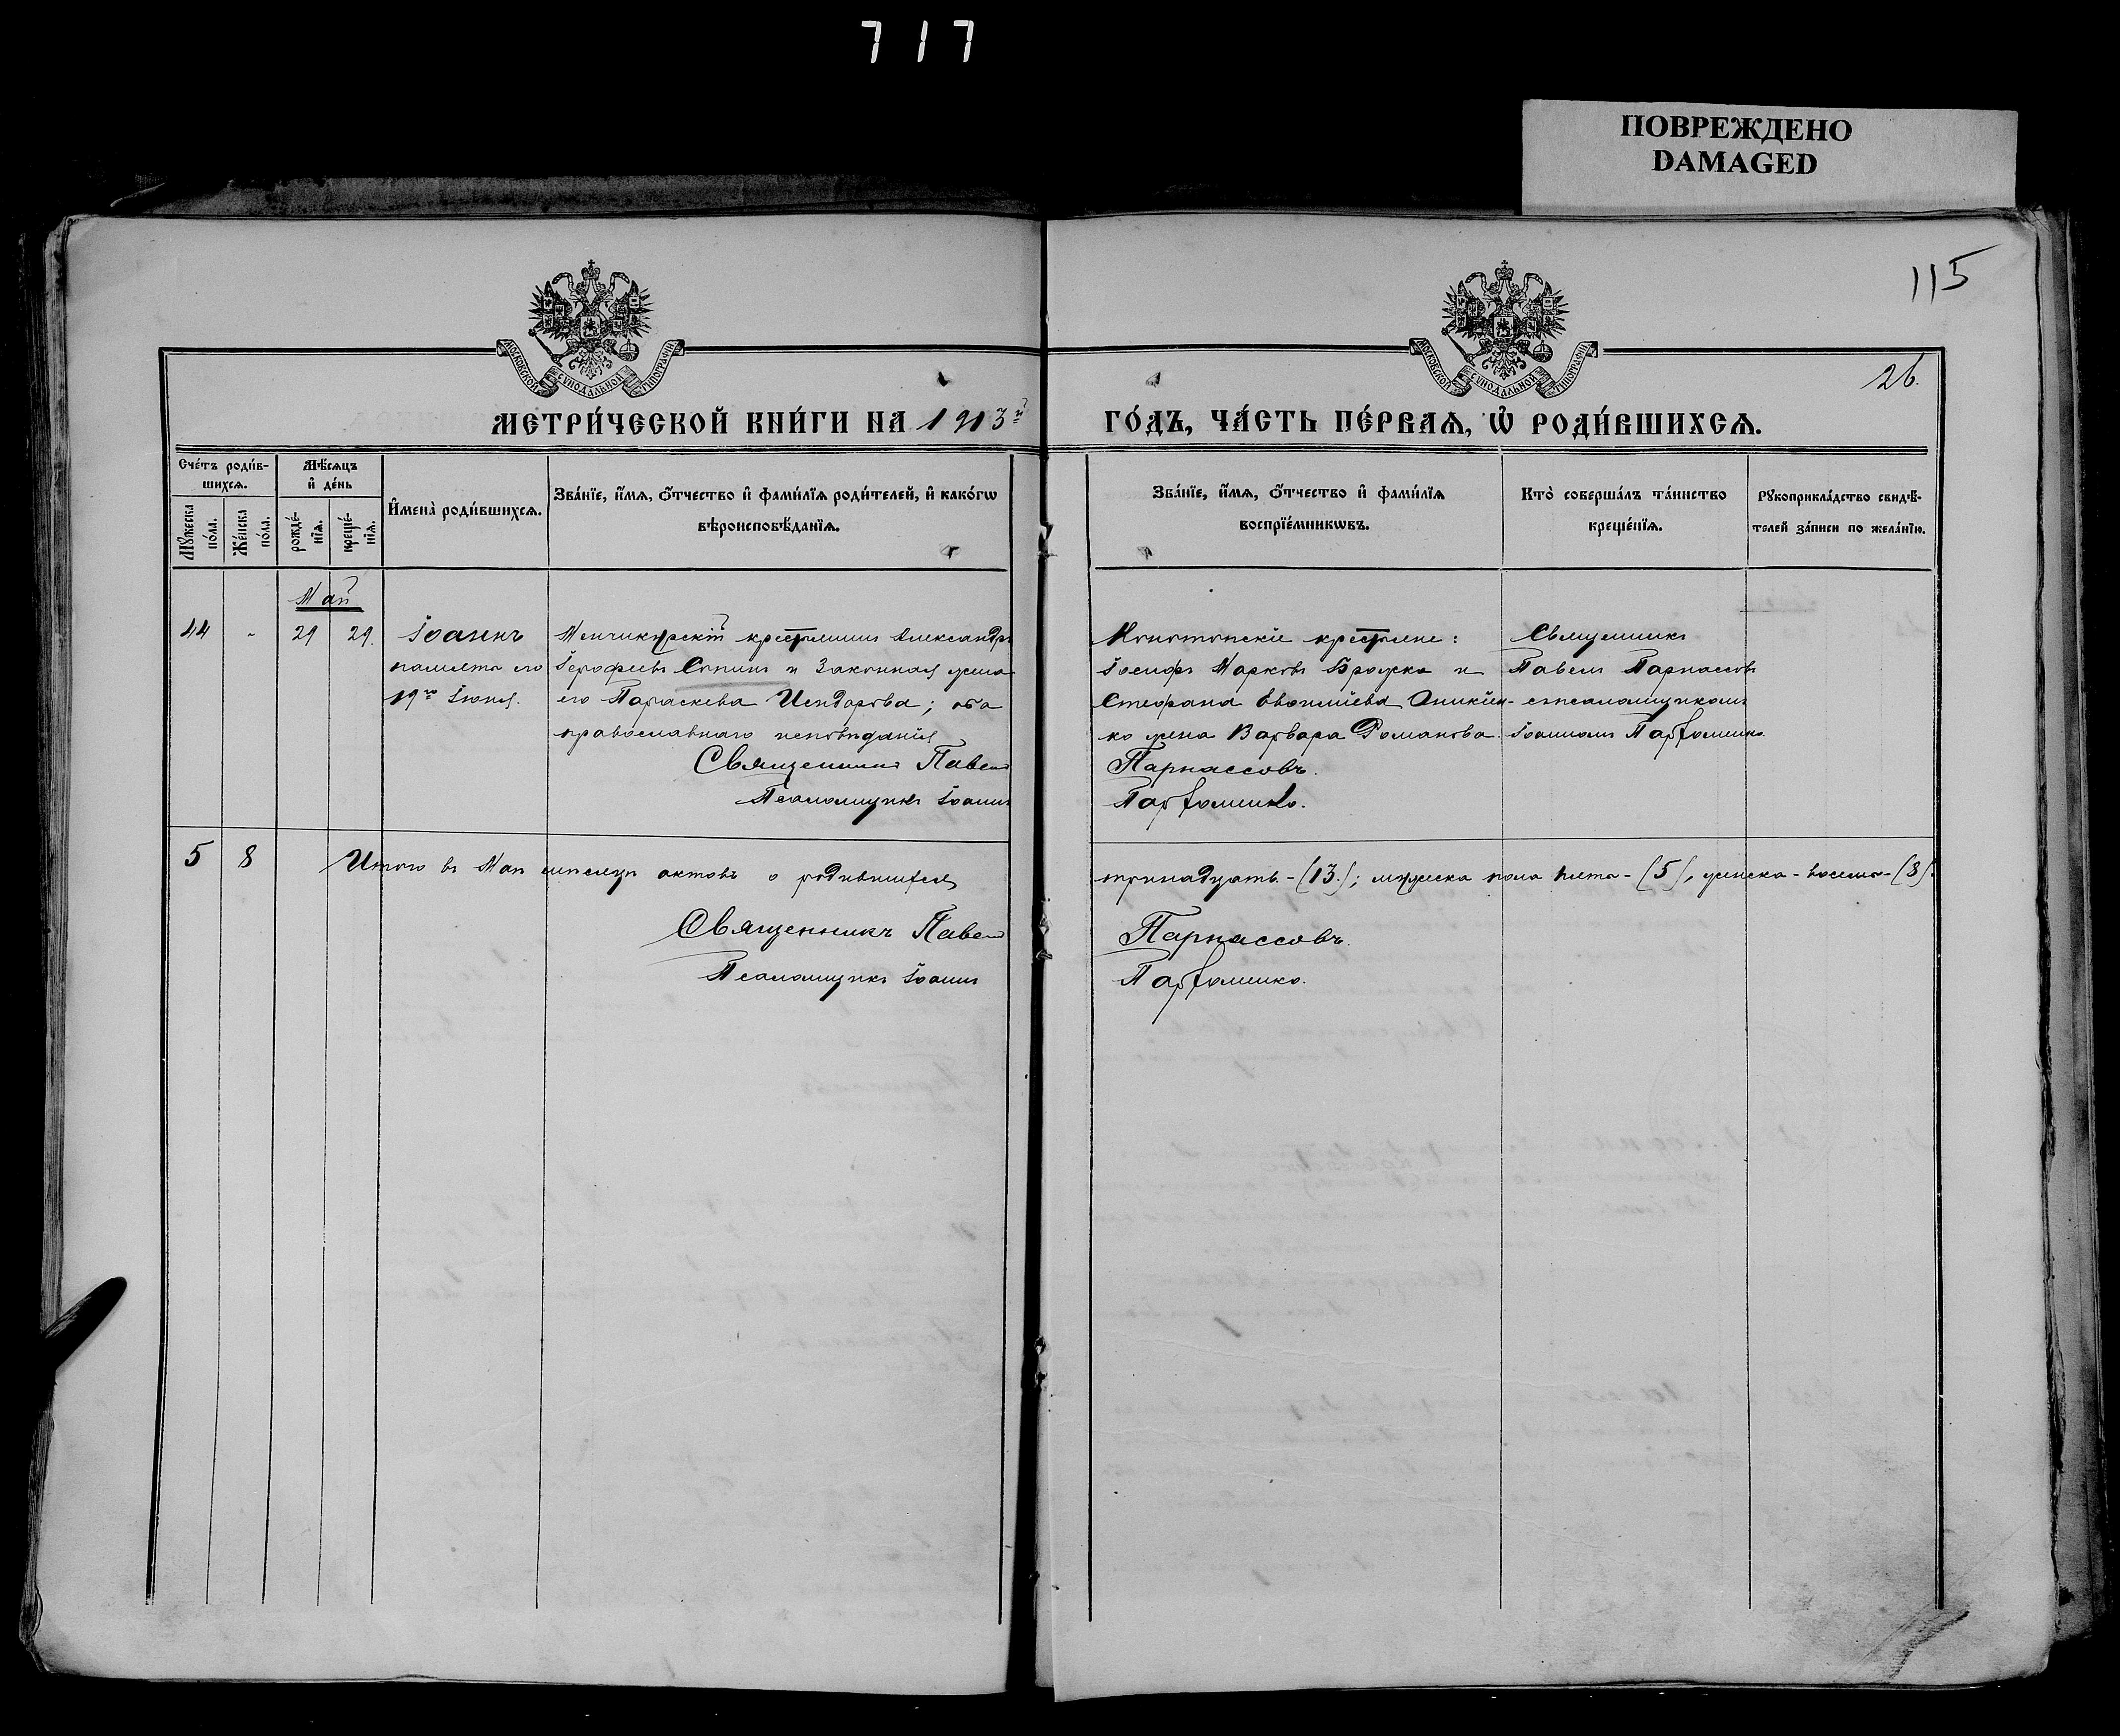 717
ПОВРЕЖДЕНО
DAMAGED
115
МОСКОВСКОЙ СѴНОДАЛЬНОЙ ТИПОГРАФІИ
МОСКОВСКОЙ СѴНОДАЛЬНОЙ ТИПОГРАФІИ
26.
МЕТРИ́ЧЕСКОЙ КНИ́ГИ НА 1913й
ГО́ДЪ, ЧА́СТЬ ПЕ́РВАѦ, Ѡ҆ РОДИ́ВШИХСѦ.
Сче́тъ роди́в-
шихсѧ.
Мѣ́сѧцъ
и҆ де́нь
Мꙋ́жеска
по́ла.
Же́нска
по́ла.
рожде́-
нїѧ.
креще́-
нїѧ.
И҆мена̀ роди́вшихсѧ.
Зва́нїе, и҆́мѧ, ѻ҆́тчество и҆ фами́лїѧ роди́телей, и҆ како́гѡ
вѣроисповѣ́данїѧ.
Зва́нїе, и҆́мѧ, ѻ҆́тчество и҆ фами́лїѧ
воспрїе́мникѡвъ.
Кто̀ соверша́лъ та́инство
креще́нїѧ.
Рꙋкоприкла́дство свидѣ́-
телей за́писи по жела́нїю.
Май
44 - 29 29. Іоаннъ
память его
19го Іюня.
Менчикурскій крестьянинъ Александръ
Іерофеевъ Сопинъ и законная жена
его Параскева Исидорова; оба
православнаго исповѣданія
Священникъ Павелъ
Псаломщикъ Іоаннъ
Конотопскіе крестьяне:
Іосифъ Марковъ Бражко и
Стефана Аникѣен-
ко жена Варвара Романова
Парнассовъ.
Парфоменко.
Священникъ
Павелъ Парнассовъ
съ псаломщикомъ
Іоанномъ Парфоменко.
5 8 Итого въ Маѣ мѣсяцѣ актовъ о родившихся
тринадцать - (13.); мужеска пола пять - (5), женска - восемь - (8).
Священникъ Павелъ
Парнассовъ.
Псаломщикъ Іоаннъ
Парфоменко.